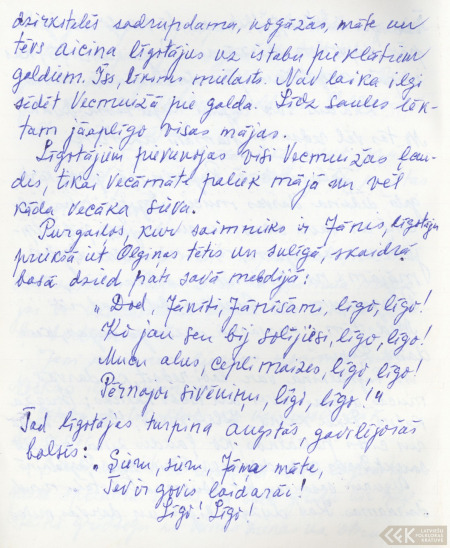 dzirkstelēs sadrupdama, nogāžas, māte un
tēvs aicina līgotājus uz istabu pie klātiem
galdiem. Īss, bet mielasts. Nav laika ilgi
sēdēt Vecmuižā pie galda. Līdz saules lēk-
tam jāaplīgo visas mājas.
Līgotājiem pievienojas visi Vecmuižas ļau-
dis, tikai vecāmāte paliek mājā un vēl
kāda vecāka sieva.
Purgaiļos, kur saimnieks ir Jānis, līgotāju
priekšā iet Olginas tētis un sulīgā, skaidrā
basā dzied pats savā melodijā:
"Dod, Jānīti, Jānīšami, līgo, līgo!
Ko jau sen bij solījiesi, līgo, līgo!
Mucu alus, cepli maizes, līgo, līgo!
Pērnajos sivēniņu, līgo, līgo!"
Tad līgotājas turpina augstās, gavilējošās
balsīs:
"Sieru, sieru, Jāņa māte,
Tev ir govis laidarāi!
Līgo! Līgo!
LFK LATVIEŠU
FOLKLORAS
KRĀTUVE